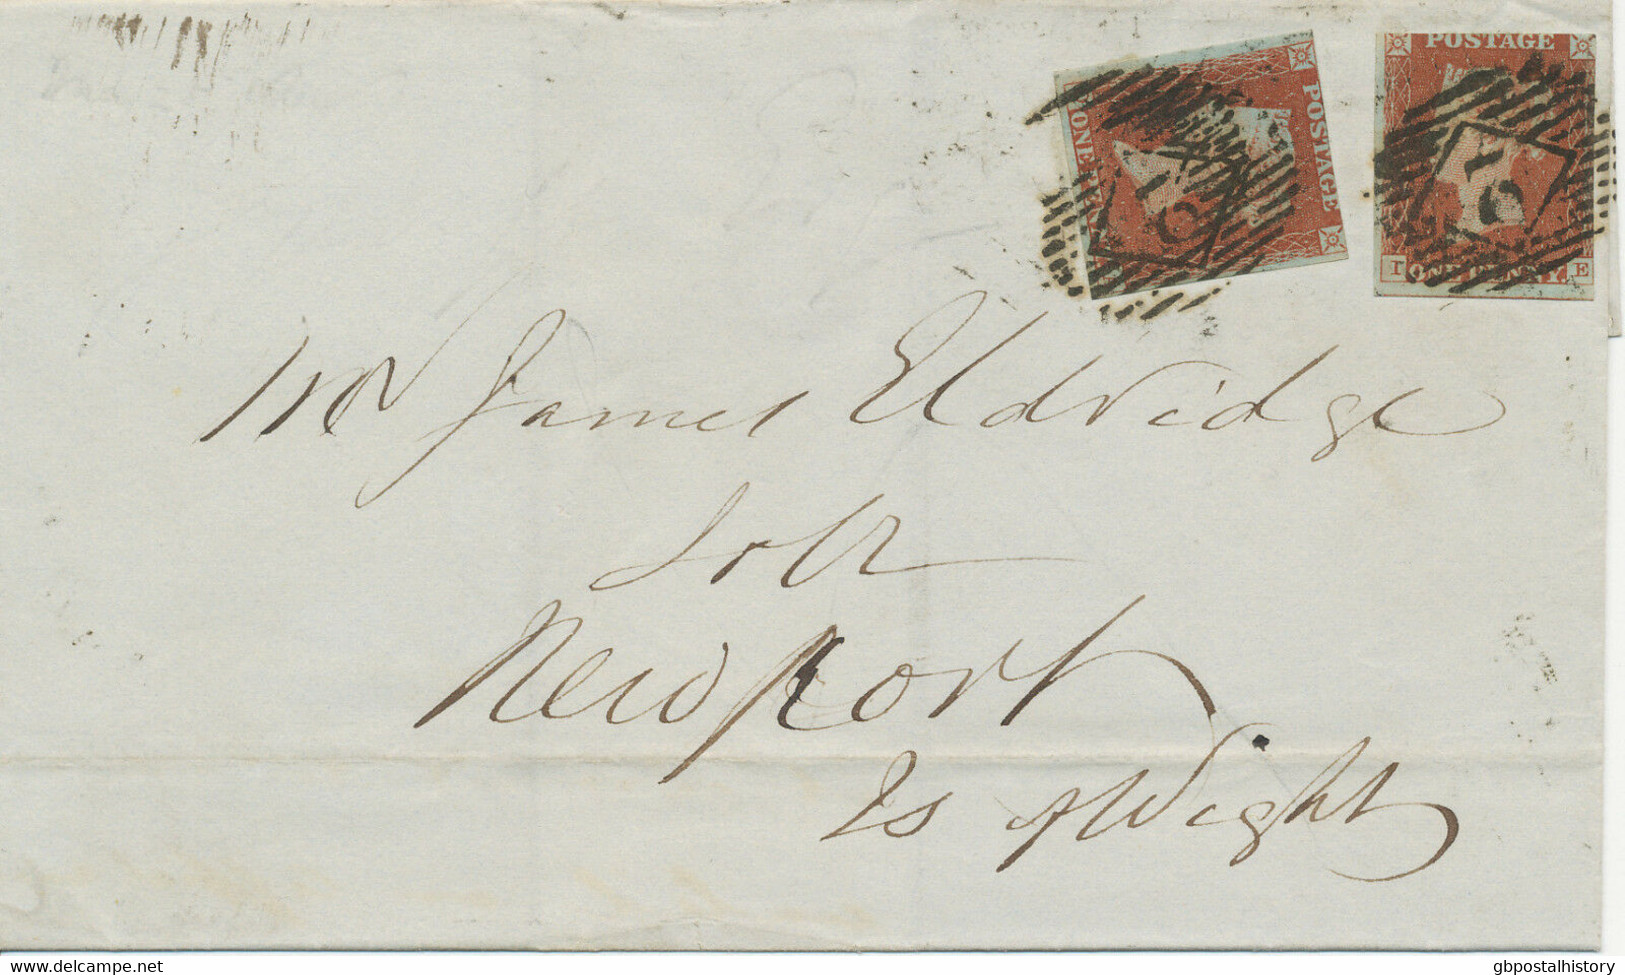 POSTAGE
ONE PE
POSTAGE
I ONE PENNY. E
Mr James Eldridge
Solr
Newport
Is of Wight
delcampe.net
gbpostalhistory